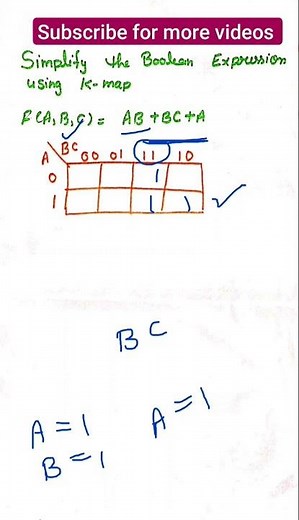 Subscribe for more videos
Simplify the Boolean Expression
using K-map
F(A,B,C) = AB+BC+A
A BC 00 01 11 10
0 1
1 1 1
BC
A=1 A=1
B=1